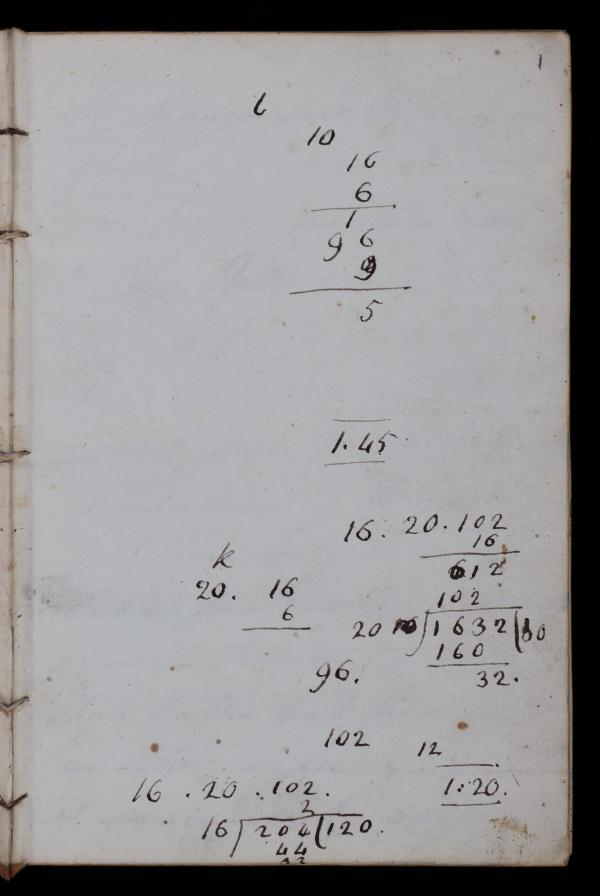 1
l
10
16
6
1
9 6
9
5
1. 45
16. 20. 102
16
612
102
k
20. 16
6
96.
20 1632 80
160
32.
102
12
1. 20.
16 . 20 . 102.
2
16 ) 204 ( 120.
44